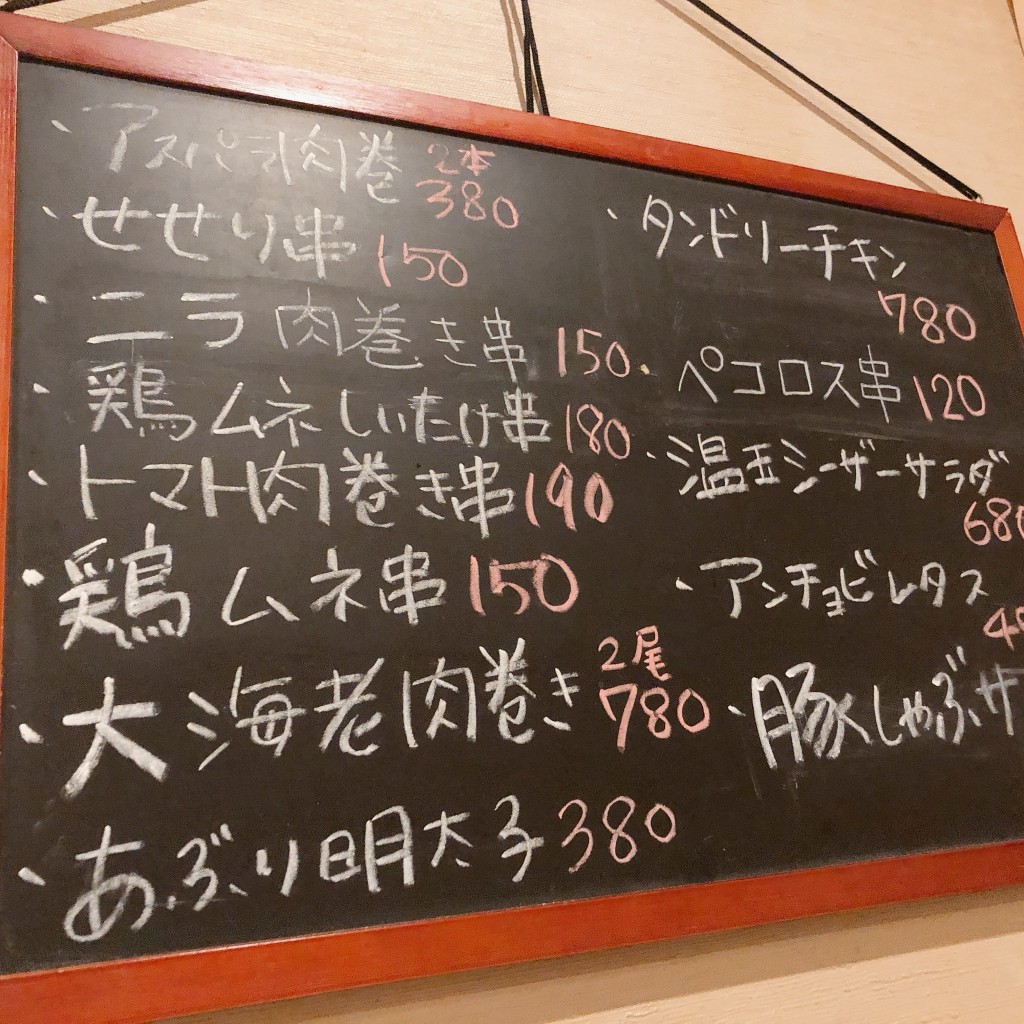 ・アスパラ肉巻 2本 380
・せせり串 150
・ニラ肉巻き串 150
・鶏ムネしいたけ串 180
・トマト肉巻き串 190
・鶏ムネ串 150
・大海老肉巻き 2尾 780
・あぶり明太子 380
・タンドリーチキン
780
・ペコロス串 120
・温玉シーザーサラダ
680
・アンチョビレタス
4
・豚しゃぶサ